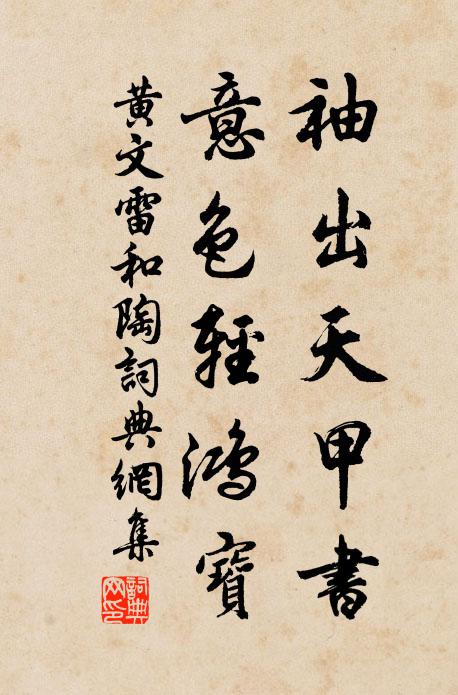 袖出天甲書
意色輕鴻寶
黃文雷和陶詞典網集
詞典網印